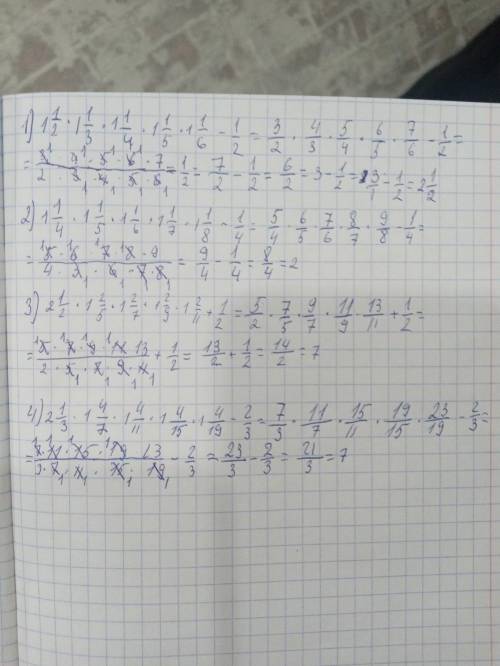 1) 1 1/2 · 1 1/3 · 1 1/4 · 1 1/5 · 1 1/6 - 1/2 = 3/2 · 4/3 · 5/4 · 6/5 · 7/6 - 1/2 =
= 7/2 - 1/2 = 6/2 = 3 - 1/2 = 3/1 - 1/2 = 2 1/2
2) 1 1/4 · 1 1/5 · 1 1/6 · 1 1/7 · 1 1/8 - 1/4 = 5/4 · 6/5 · 7/6 · 8/7 · 9/8 - 1/4 =
= 9/4 - 1/4 = 8/4 = 2
3) 2 1/2 · 1 2/5 · 1 2/7 · 1 2/9 · 1 2/11 + 1/2 = 5/2 · 7/5 · 9/7 · 11/9 · 13/11 + 1/2 =
= 5 · 7 · 9 · 11 · 13/2 · 5 · 7 · 9 · 11 + 1/2 = 13/2 + 1/2 = 14/2 = 7
4) 2 1/3 · 1 4/7 · 1 4/11 · 1 4/15 · 1 4/19 - 2/3 = 7/3 · 11/7 · 15/11 · 19/15 · 23/19 - 2/3 =
= 7 · 11 · 15 · 19 23/3 · 7 · 11 · 15 · 19 - 2/3 = 23/3 - 2/3 = 21/3 = 7